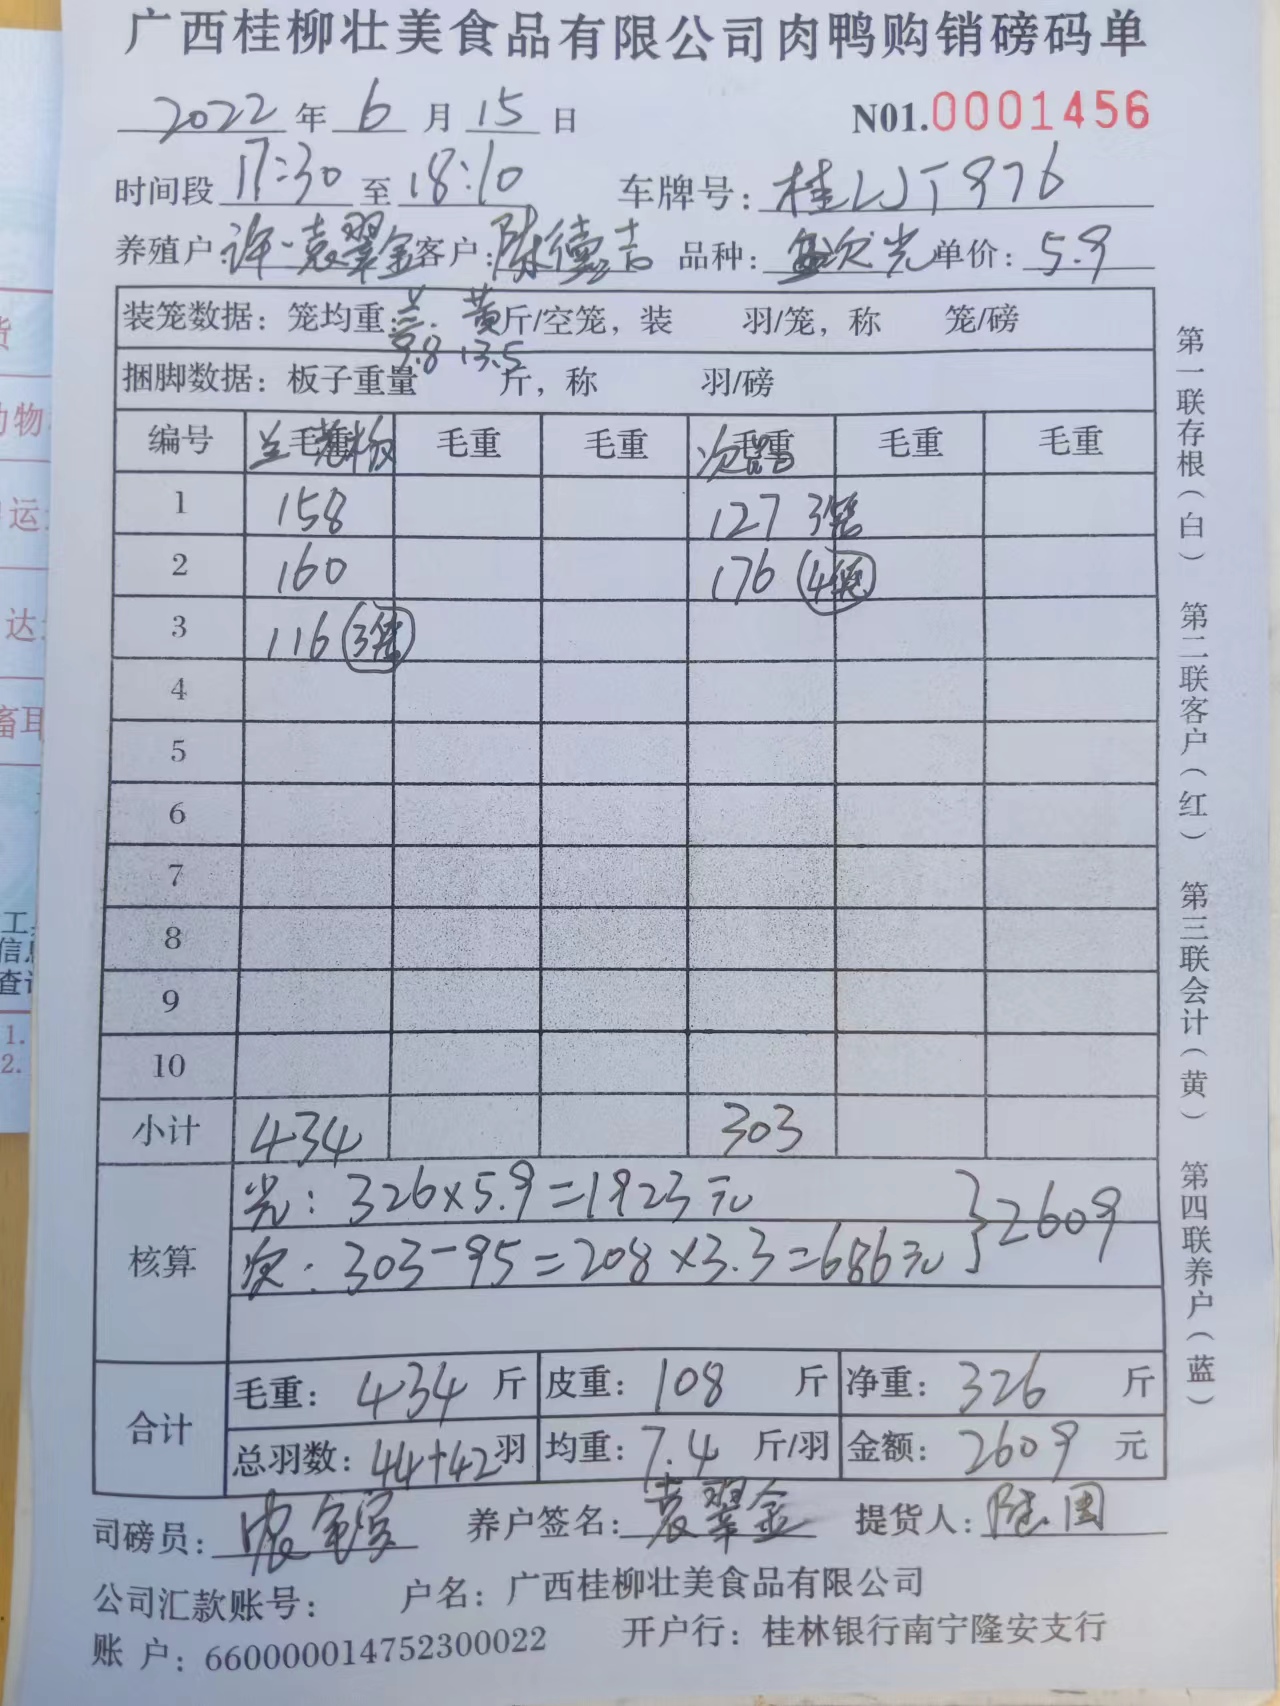 广西桂柳壮美食品有限公司肉鸭购销磅码单
2022 年 6 月 15 日 N01.0001456
时间段 17:30 至 18:10 车牌号: 桂LJT976
养殖户: 许·袁翠金 客户: 陈德吉 品种: 次光 单价: 5.9
装笼数据: 笼均重 兰 黄 斤/空笼, 装 羽/笼, 称 笼/磅
9.8 13.5
捆脚数据: 板子重量 斤, 称 羽/磅
编号 毛重 毛重 毛重 毛重 毛重 毛重
1 158 127 3笼
2 160 176 4笼
3 116 3笼
4
5
6
7
8
9
10
小计 434 303
核算
光: 326×5.9=1923元
次: 303-95=208×3.3=686元 }2609
合计
毛重: 434 斤 皮重: 108 斤 净重: 326 斤
总羽数: 44+42 羽 均重: 7.4 斤/羽 金额: 2609 元
司磅员: 养户签名: 袁翠金 提货人: 陆国
公司汇款账号: 户名: 广西桂柳壮美食品有限公司
账 户: 660000014752300022 开户行: 桂林银行南宁隆安支行
第一联存根(白) 第二联客户(红) 第三联会计(黄) 第四联养户(蓝)
动物
运
达
畜耳
工
信息
查
1.
2.